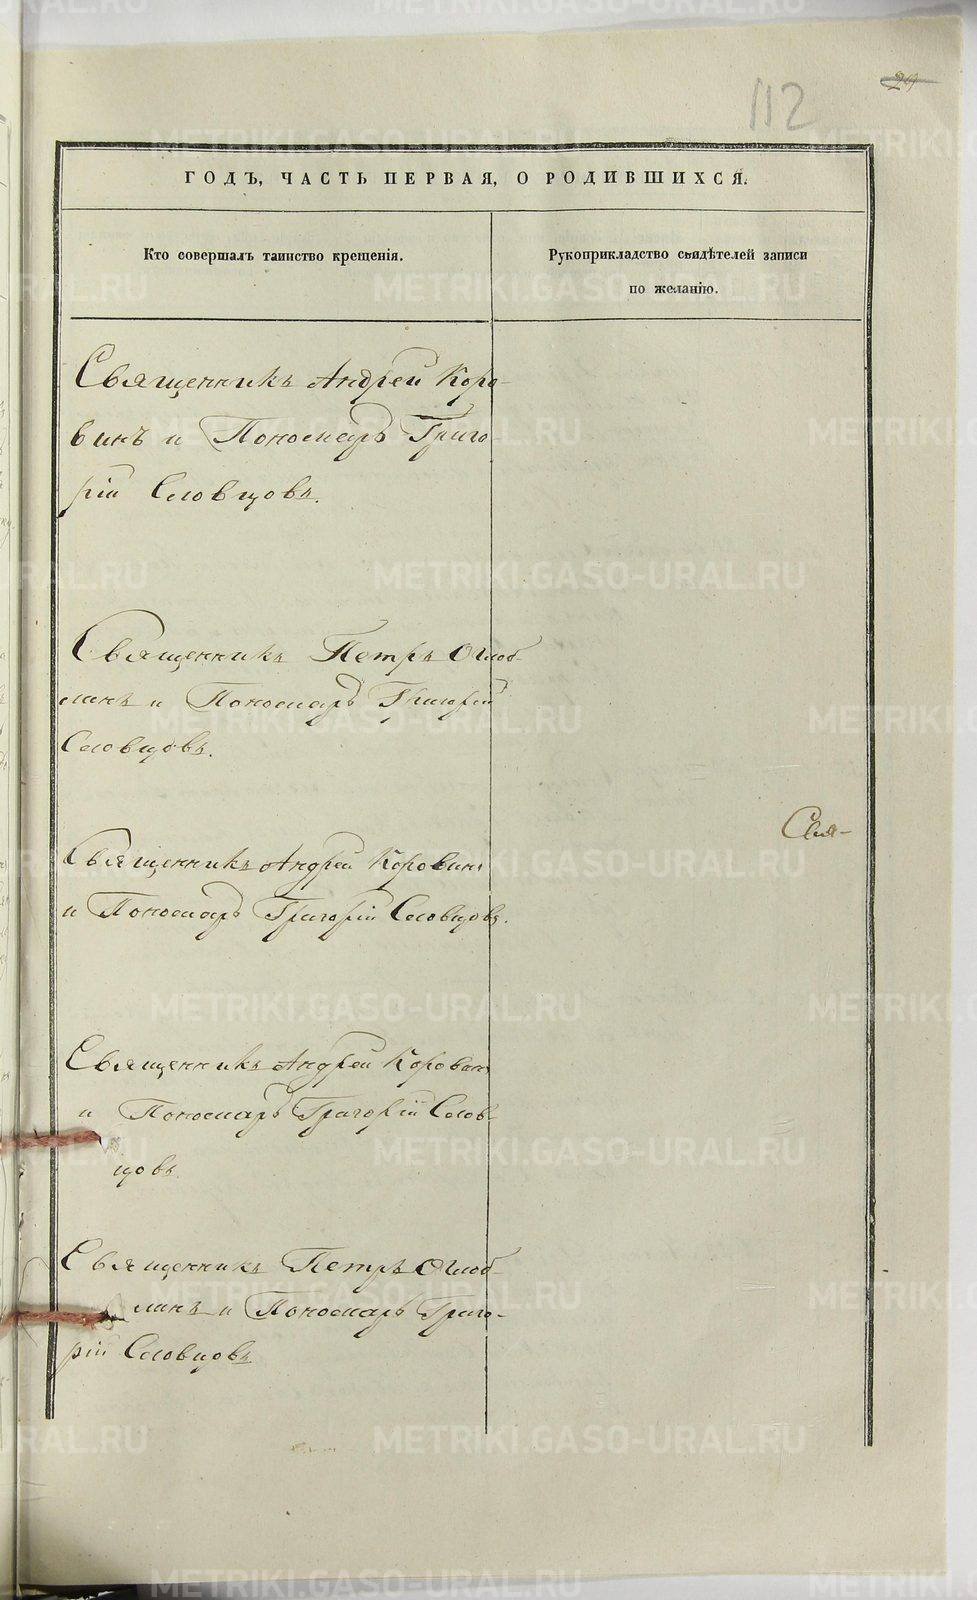 112
29
ГОДЪ, ЧАСТЬ ПЕРВАЯ, О РОДИВШИХСЯ.
Кто совершалъ таинство крещенія.
Рукоприкладство свидѣтелей записи
по желанію.
Священникъ Андрей Коро-
винъ и Пономарь Григо-
рій Словцовъ.
Священникъ Петръ Оглоб-
линъ и Пономарь Григорій
Словцовъ.
Свя-
Священникъ Андрей Коровинъ
и Пономарь Григорій Словцовъ.
Священникъ Андрей Коровинъ
и Пономарь Григорій Слов-
цовъ
Священникъ Петръ Оглоб-
линъ и Пономарь Григо-
рій Словцовъ
METRIKI.GASO-URAL.RU